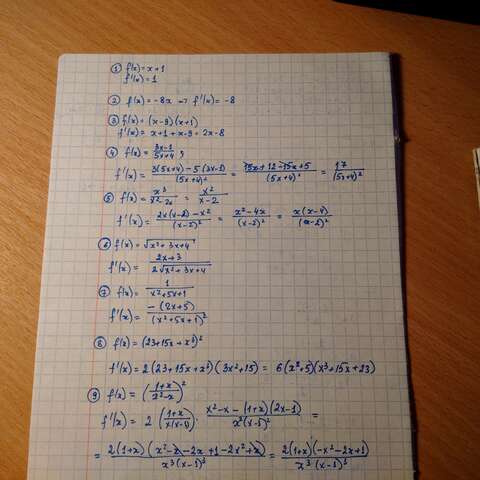 ① f(x) = x + 1
f'(x) = 1
② f(x) = -8x ⟹ f'(x) = -8
③ f(x) = (x-9)(x+1)
f'(x) = x+1 + x-9 = 2x-8
④ f(x) = (3x-1)/(5x+4) ;
f'(x) = (3(5x+4) - 5(3x-1))/(5x+4)² = (15x + 12 - 15x + 5)/(5x+4)² = 17/(5x+4)²
⑤ f(x) = x³/(x²-2x) = x²/(x-2)
f'(x) = (2x(x-2) - x²)/(x-2)² = (x² - 4x)/(x-2)² = x(x-4)/(x-2)²
⑥ f(x) = √(x² + 3x + 4)
f'(x) = (2x+3)/(2√(x² + 3x + 4))
⑦ f(x) = 1/(x² + 5x + 1)
f'(x) = -(2x+5)/(x² + 5x + 1)²
⑧ f(x) = (23 + 15x + x³)²
f'(x) = 2(23 + 15x + x³)(3x² + 15) = 6(x² + 5)(x³ + 15x + 23)
⑨ f(x) = ((1+x)/(x²-x))²
f'(x) = 2 ((1+x)/(x(x-1))) · (x² - x - (1+x)(2x-1))/(x²(x-1)²) =
= 2(1+x)(x² - x - 2x + 1 - 2x² + x)/(x³(x-1)³) = 2(1+x)(-x² - 2x + 1)/(x³(x-1)³)